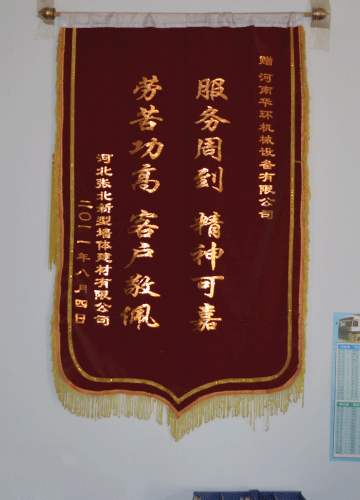 赠 河南华环机械设备有限公司
服务周到 精神可嘉
劳苦功高 客户敬佩
河北张北新型墙体建材有限公司
二〇一一年八月四日